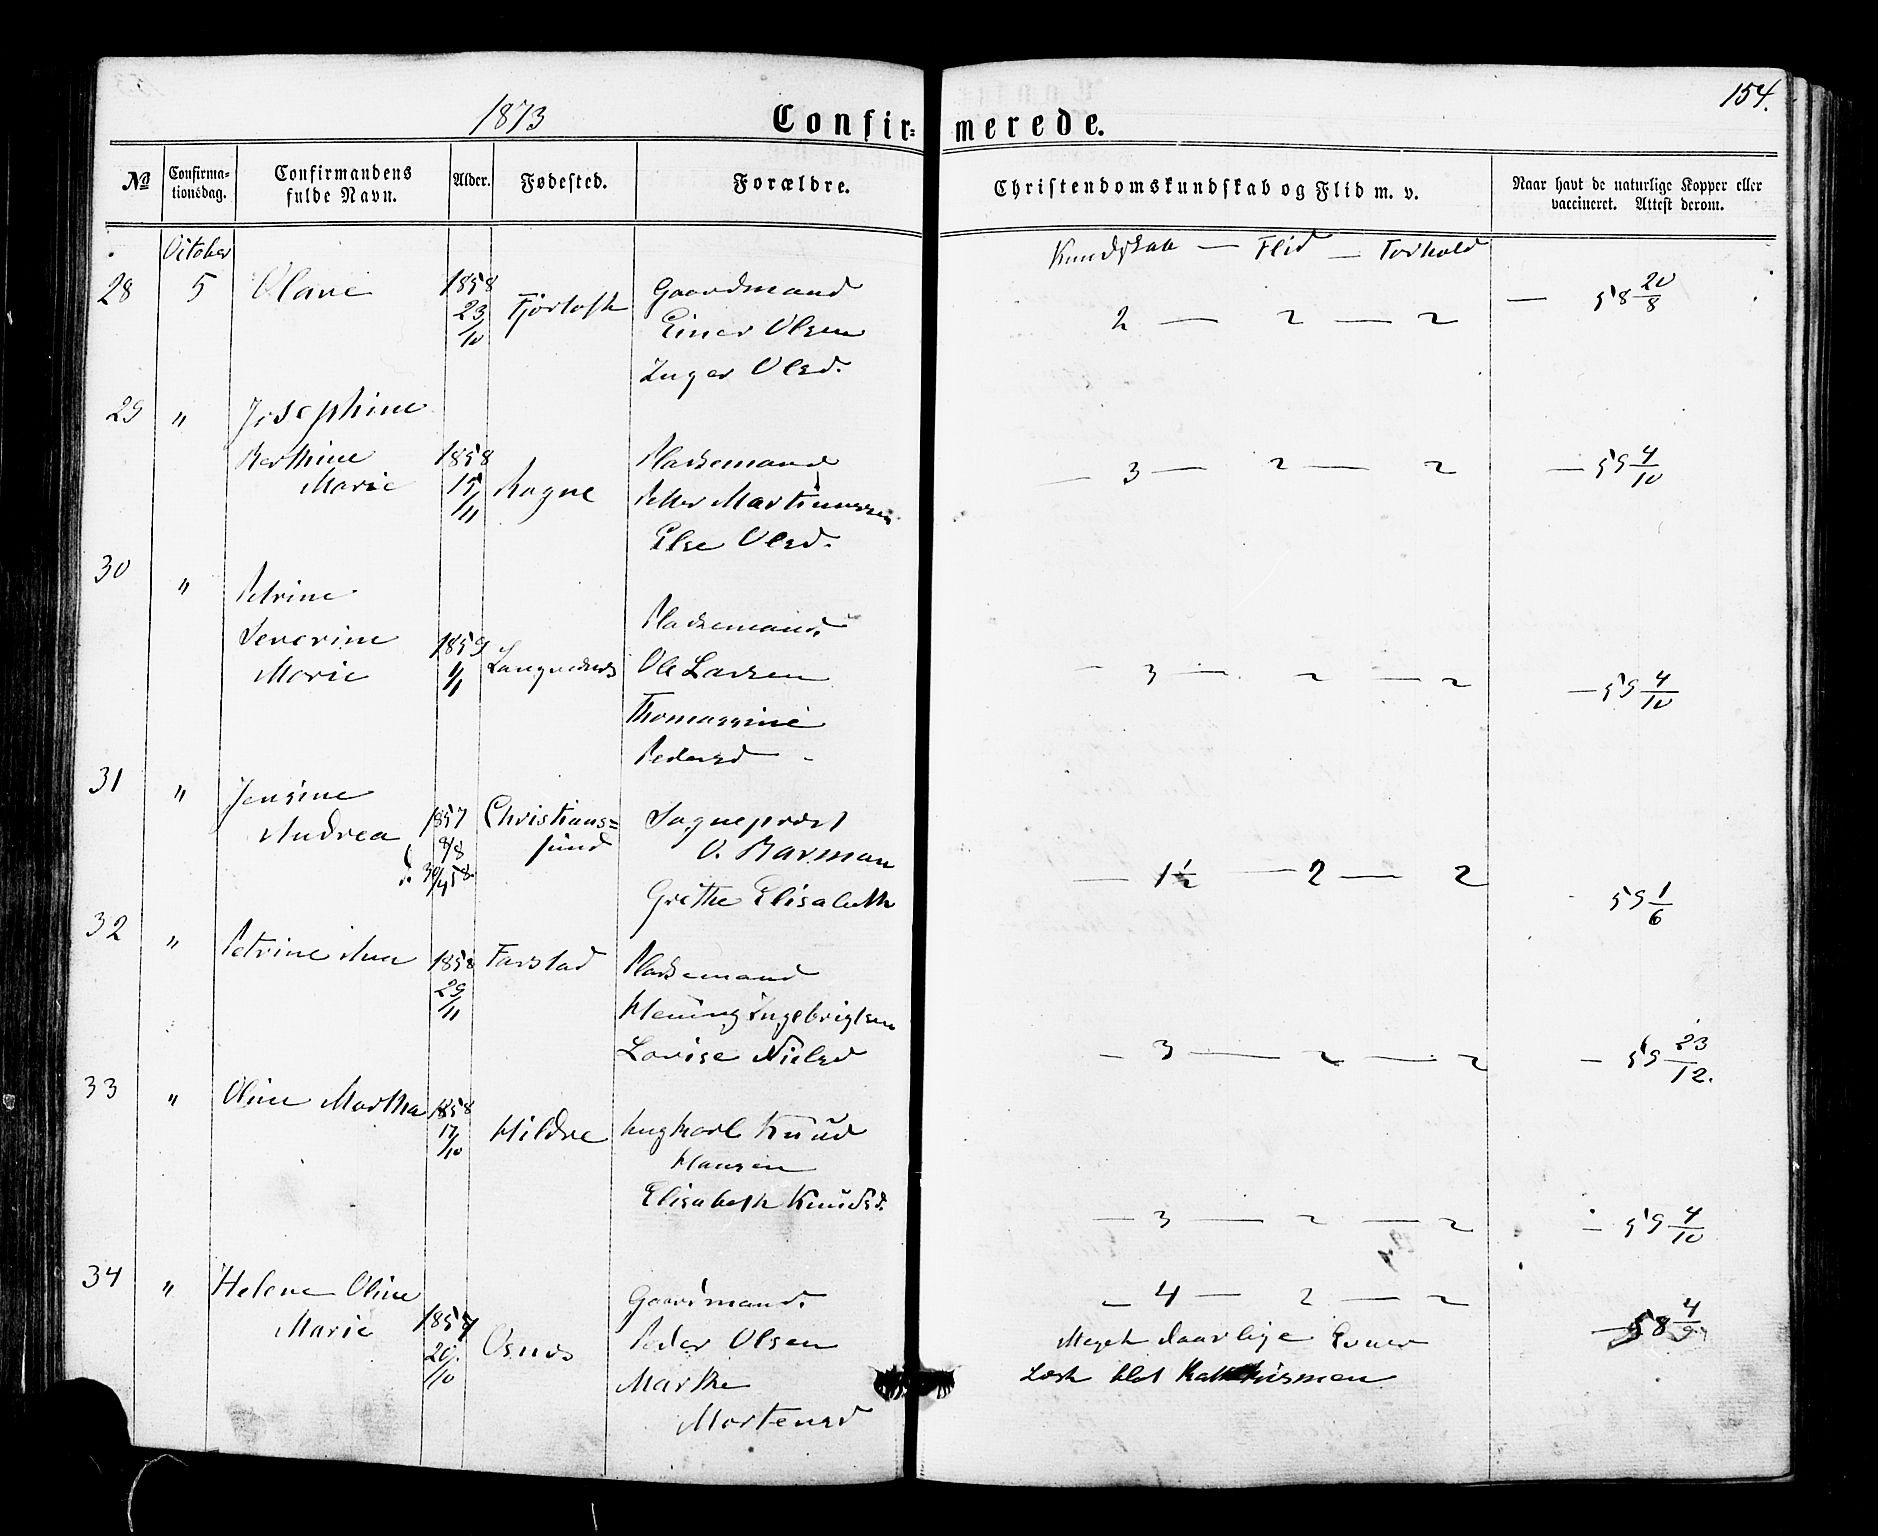 154.
1873
Confir= merede.
No
Confirma=
tionsdag.
Confirmandens
fulde Navn.
Alder.
Fødested.
Forældre.
Christendomskundskab og Flid m. v.
Naar havt de naturlige Kopper eller
vaccineret. Attest derom.
October
Kundskab — Flid — Forhold
28 5 Olave 1858 23/10 Fjørtoft Gaardmand
Einer Olsen
Inger Olsd.
2 — 2 — 2 — 58 20/8
29 " Josephine
Berthine
Marie
1858 15/11 Rogne Pladsemand
Petter Martinussen
Else Olsd.
— 3 — 2 — 2 — 59 4/10
30 " Petrine
Severine
Marie
1859 1/1 Pladsemand
Ole Larsen
Thomassine
Pedersd
— 3 — 2 — 2 — 59 4/10
31 " Jensine
Andrea
1857 8/8
Christians=
sund
Sognepræst
O. Barman
Grethe Elisabeth
— 1½ — 2 — 2 59 1/6
32 " Petrine Ana 1858 29/11 Farstad Pladsemand
Hening Ingebrigtsen
Lovise Nielsd
— 3 — 2 — 2 — 59 23/12.
33 " Oline Martha 1858 17/10 Hildre Ungkarl Knud
Hansen
Elisabeth Knudsd.
— 3 — 2 — 2 — 59 4/10
34 " Helene Oline
Marie
1857 20/10 Osnes Gaardmand
Peder Olsen
Marthe
Mortensd
— 4 — 2 — 2 — 58 4/9
Meget daarlige Evner
Læst blot Katekismen